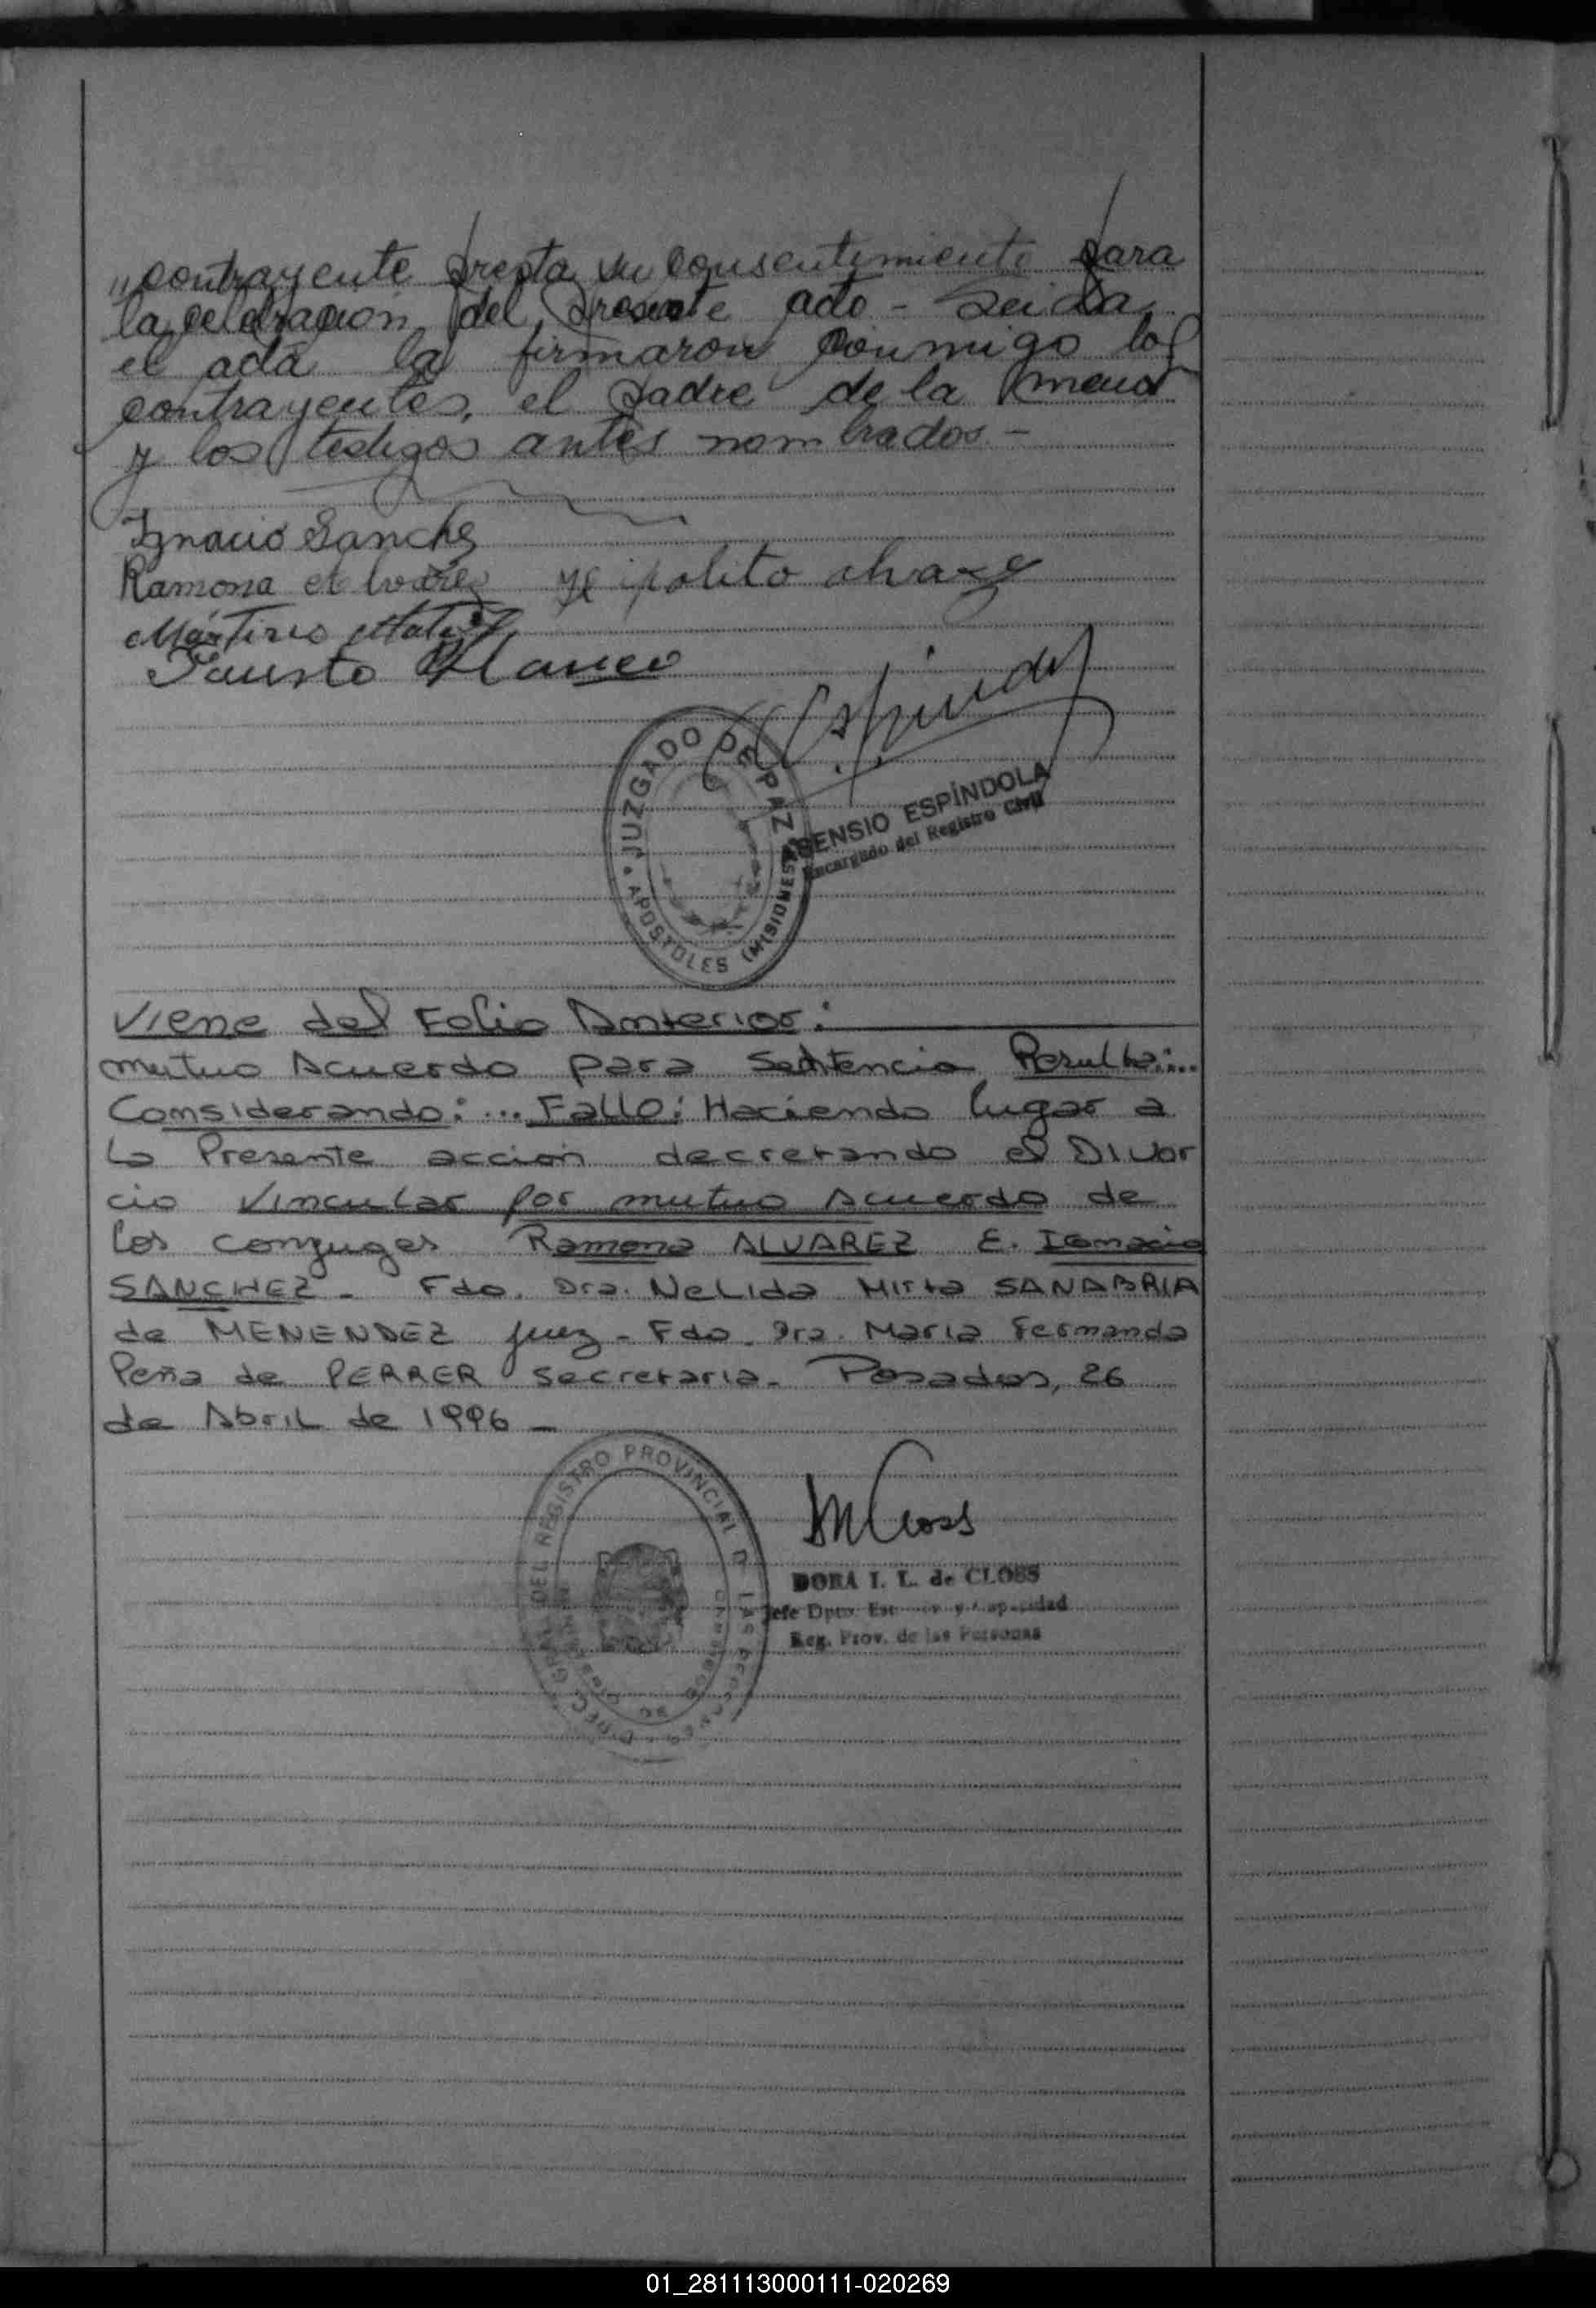 ,,contrayente presta su consentimiento para
la celebracion del presente acto - Leida
el acta la firmaron conmigo los
contrayentes, el padre de la menor
y los testigos antes nombrados -
Ignacio Sanchez
Ramona Alvarez
Fausto Blanco
JUZGADO DE PAZ
APOSTOLES (MISIONES)
ASENSIO ESPÍNDOLA
Encargado del Registro Civil
Viene del Folio Anterior:
mutuo Acuerdo para Sentencia Resulta:...
Considerando: ... Fallo: Haciendo lugar a
la Presente acción decretando el Divor
cio Vincular por mutuo Acuerdo de
los conyuges Ramona ALVAREZ E. Ignacio
SANCHEZ - Fdo. Dra. Nelida Mirta SANABRIA
de MENENDEZ juez - Fdo. Dra. Maria Fernanda
Peña de PERRER secretaria - Posadas, 26
de Abril de 1996 -
DEL REGISTRO PROVINCIAL
DORA I. L. de CLOSS
Jefe Dpto. y Capacidad
Reg. Prov. de las Personas
01_281113000111-020269